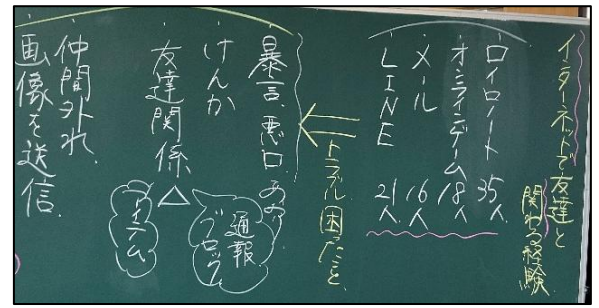 インターネットで友達と
関わる経験
ロイロノート 35人
オンラインゲーム 18人
メール 16人
LINE 21人
トラブル 困ったこと
暴言、悪口
けんか
通報
ブロック
友達関係 △
仲間外れ
画像を送信